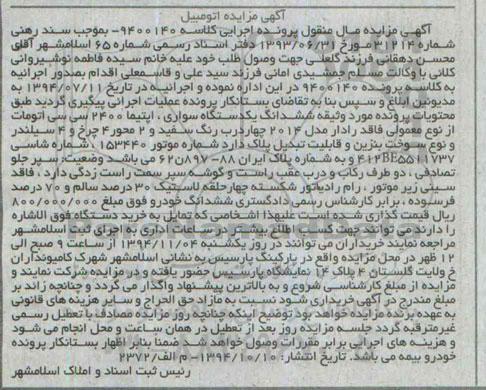 آگهی مزایده اتومبیل
آگهی مزایده مال منقول پرونده اجرایی کلاسه ۹۴۰۰۱۴۰- بموجب سند رهنی
شماره ۳۱۲۱۴ مورخ ۱۳۹۳/۰۶/۳۱ دفتر اسناد رسمی شماره ۶۵ اسلامشهر آقای
محسن دهقانی فرزند کلعلی جهت وصول طلب خود علیه خانم سیده فاطمه نوشیروانی
کلانی با وکالت سالم جمشیدی امانی فرزند سید علی و قاسمعلی اقدام بصدور اجرائیه
به کلاسه پرونده ۹۴۰۰۱۴۰ در این اداره نموده و اجرائیه در تاریخ ۱۳۹۴/۰۷/۱۱ به
مدیونین ابلاغ و سپس بنا به تقاضای بستانکار پرونده عملیات اجرائی پیگیری گردید طبق
محتویات پرونده مورد وثیقه ششدانگ یکدستگاه سواری ، اپتیما ۲۴۰۰ سی سی اتومات
از نوع معمولی فاقد رادار مدل ۲۰۱۴ چهاردرب رنگ سفید و ۲ محور ۴ چرخ و ۴ سیلندر
و نوع سوخت بنزین و قابلیت تبدیل پلاک دارد شماره موتور ۱۵۳۴۴۰ ، شماره شاسی
۴۱۲BE۵۵۱۱۷۳۷ و به شماره پلاک ایران ۸۸- ۸۹۷ن۶۲ می باشد وضعیت: سپر جلو
تصادفی ، دو طرف رکاب و درب عقب راست و گوشه سپر سمت راست زدگی دارد ، فاقد
سینی زیر موتور ، رام رادیاتور شکسته چهارحلقه لاستیک ۳۰ درصد سالم و ۷۰ درصد
فرسوده ، برابر کارشناس رسمی دادگستری ششدانگ خودرو فوق مبلغ ۸۰۰/۰۰۰/۰۰۰
ریال قیمت گذاری شده است علیهذا اشخاصی که تمایل به خرید دستگاه فوق الاشاره
را دارند می تواند جهت کسب اطلاع بیشتر در ساعات اداری به اجرای ثبت اسلامشهر
مراجعه نمایند خریداران می توانند در روز یکشنبه ۱۳۹۴/۱۱/۰۴ از ساعت ۹ صبح الی
۱۲ ظهر در محل مزایده واقع در پارکینگ پارسیس به نشانی اسلامشهر شهرک کامیونداران
خ ولایت گلستان ۴ پلاک ۱۴ نمایشگاه پارسیس حضور یافته و در مزایده شرکت نمایند و
مزایده از مبلغ کارشناسی شروع و به بالاترین پیشنهاد واگذار می گردد و چنانچه زائد بر
مبلغ مندرج در آگهی خریداری شود نسبت به مازاد حق الحراج و سایر هزینه های قانونی
به عهده برنده مزایده خواهد بود توضیح اینکه چنانچه روز مزایده مصادف با تعطیل رسمی
غیرمترقبه گردد جلسه مزایده روز بعد از تعطیل در همان ساعت و محل انجام می شود
و هزینه های اجرایی برابر مقررات وصول خواهد شد ضمنا بنابر اظهار بستانکار پرونده
خودرو بیمه می باشد. تاریخ انتشار: ۱۳۹۴/۱۰/۱۰- م الف/۲۳۷۲
رئیس ثبت اسناد و املاک اسلامشهر